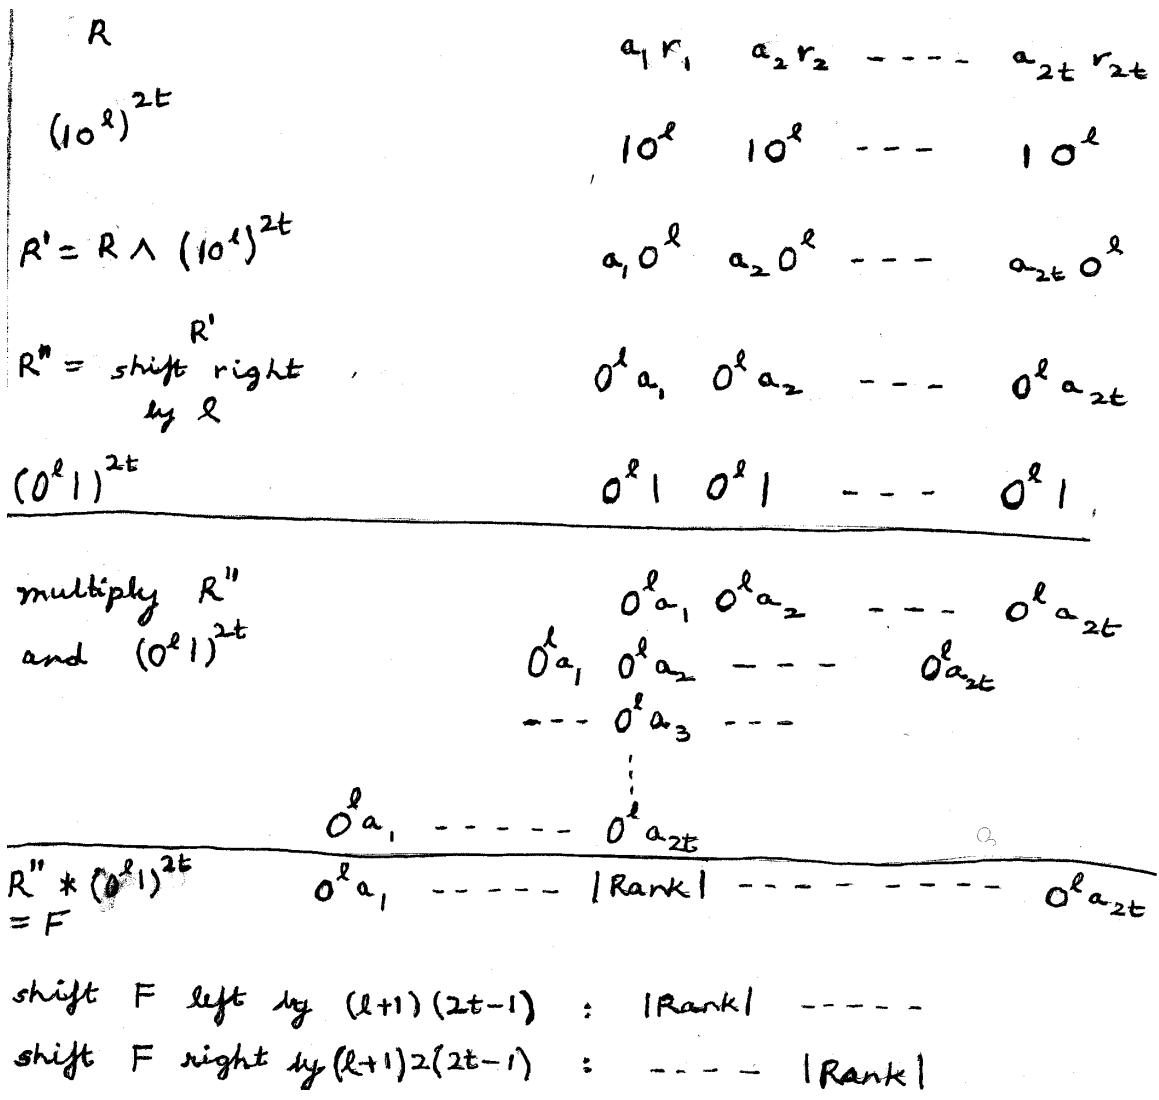 R a₁ r₁ a₂ r₂ ---- a₂ₜ r₂ₜ
(10^l)^2t 10^l 10^l --- 10^l
R' = R ∧ (10^l)^2t a₁0^l a₂0^l --- a₂ₜ0^l
R'
R" = shift right 0^l a₁ 0^l a₂ --- 0^l a₂ₜ
by l
(0^l 1)^2t 0^l 1 0^l 1 --- 0^l 1
multiply R" 0^l a₁ 0^l a₂ --- 0^l a₂ₜ
and (0^l 1)^2t 0^l a₁ 0^l a₂ --- 0^l a₂ₜ
--- 0^l a₃ ---
0^l a₁ ----- 0^l a₂ₜ
R" * (0^l 1)^2t 0^l a₁ ----- |Rank| -------- 0^l a₂ₜ
= F
shift F left by (l+1)(2t-1) : |Rank| -----
shift F right by (l+1)2(2t-1) : ---- |Rank|